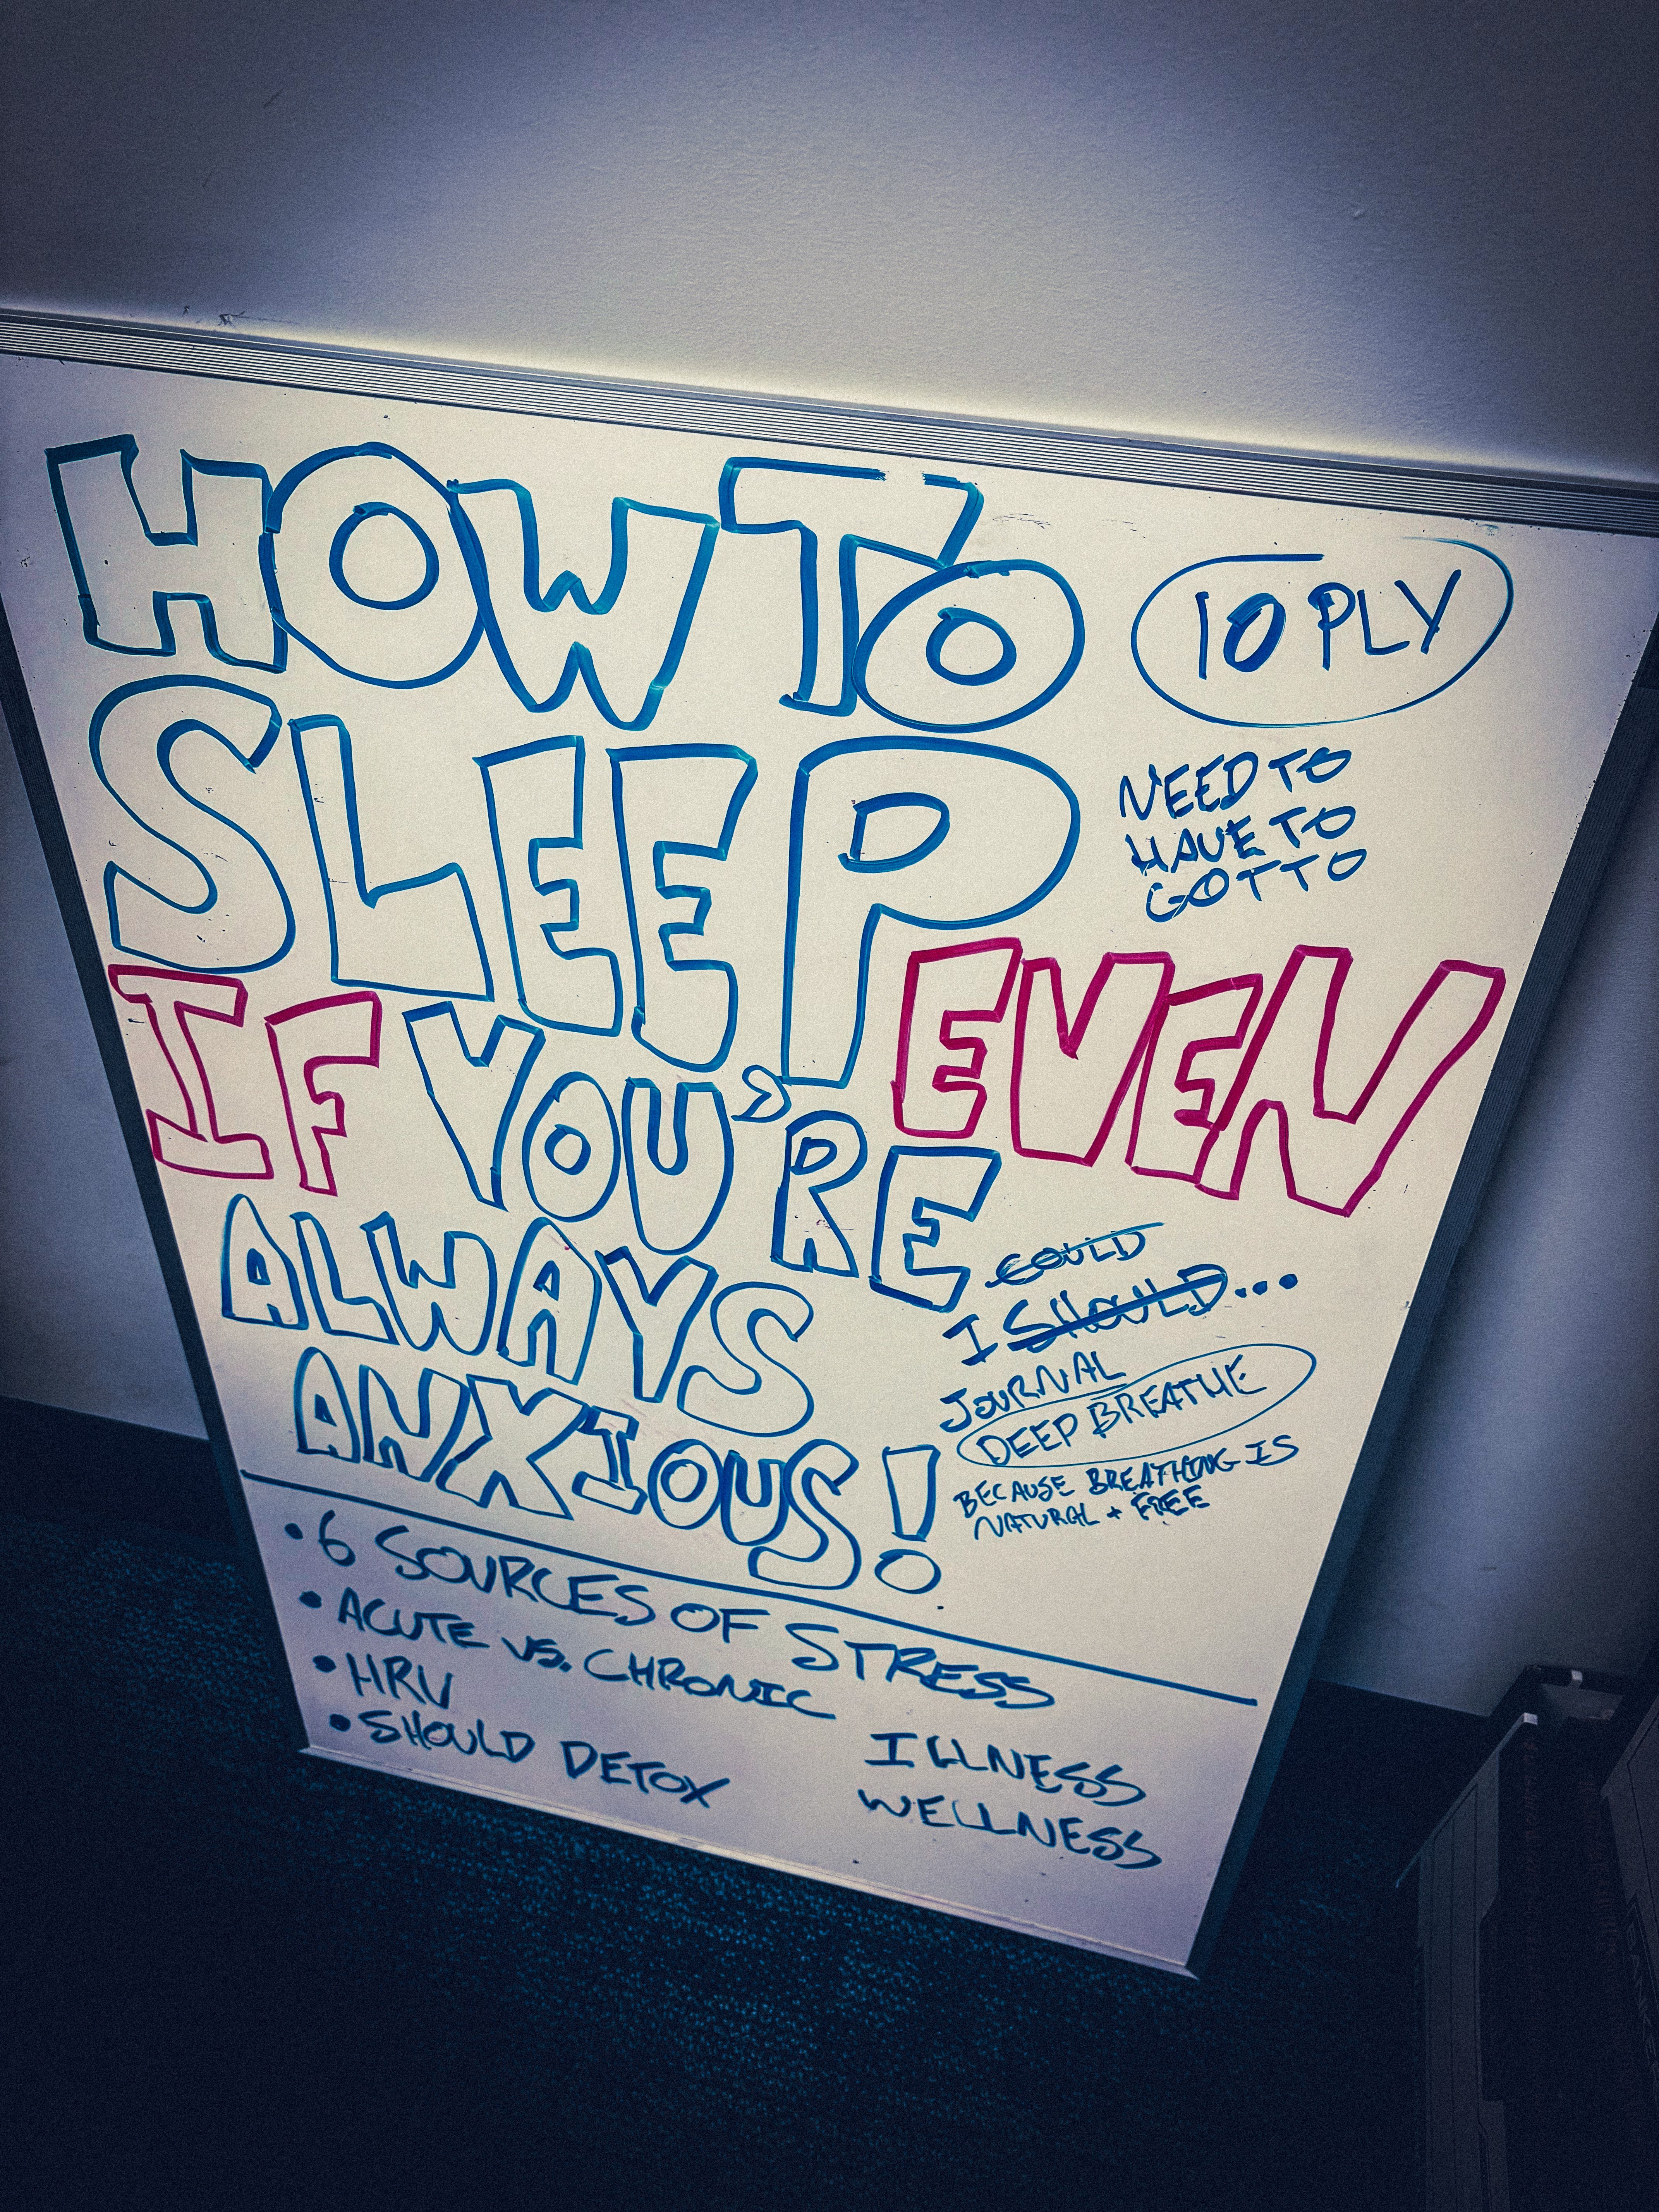 HOW TO
10 PLY
SLEEP
NEED TO
HAVE TO
GOT TO
EVEN
IF YOU'RE
ALWAYS
ANXIOUS!
COULD
I SHOULD...
JOURNAL
DEEP BREATHE
BECAUSE BREATHING IS
NATURAL + FREE
• 6 SOURCES OF STRESS
• ACUTE VS. CHRONIC
• HRV
• SHOULD DETOX
ILLNESS
WELLNESS